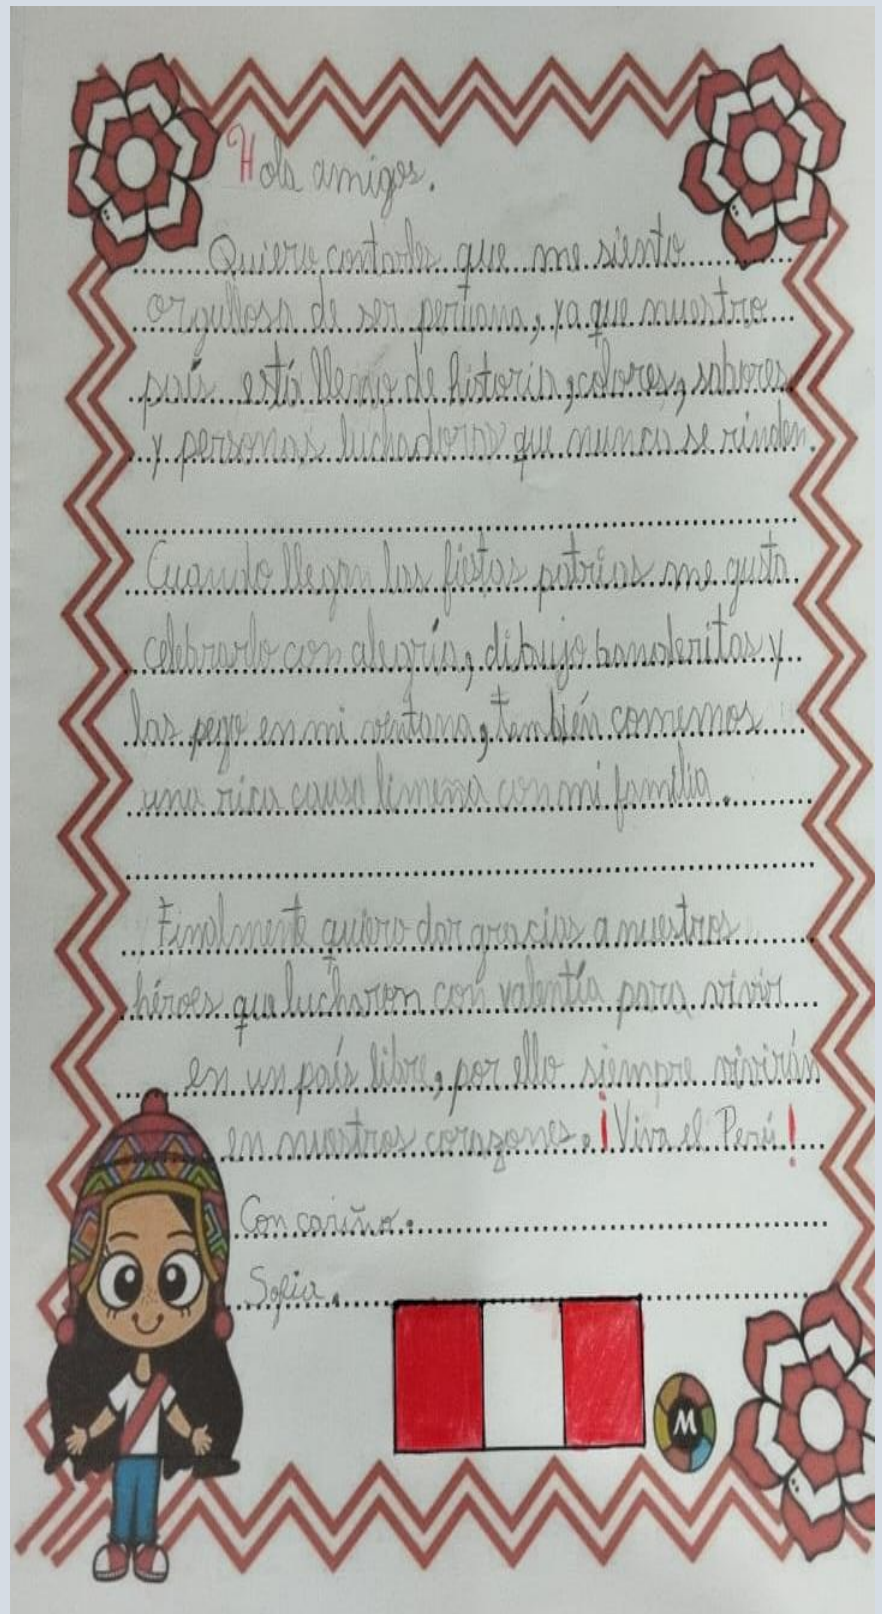 Hola amigos.
Quiero contarles que me siento
orgullosa de ser peruana, ya que nuestro
país está lleno de historia, colores, sabores
y personas luchadoras que nunca se rinden.
Cuando llegan las fiestas patrias me gusta
celebrarlo con alegría, dibujo banderitas y
las pego en mi ventana, también comemos
una rica causa limeña con mi familia.
Finalmente quiero dar gracias a nuestros
héroes que lucharon con valentía para vivir
en un país libre, por ello siempre vivirán
en nuestros corazones. ¡Viva el Perú!
Con cariño.
Sofia.
M